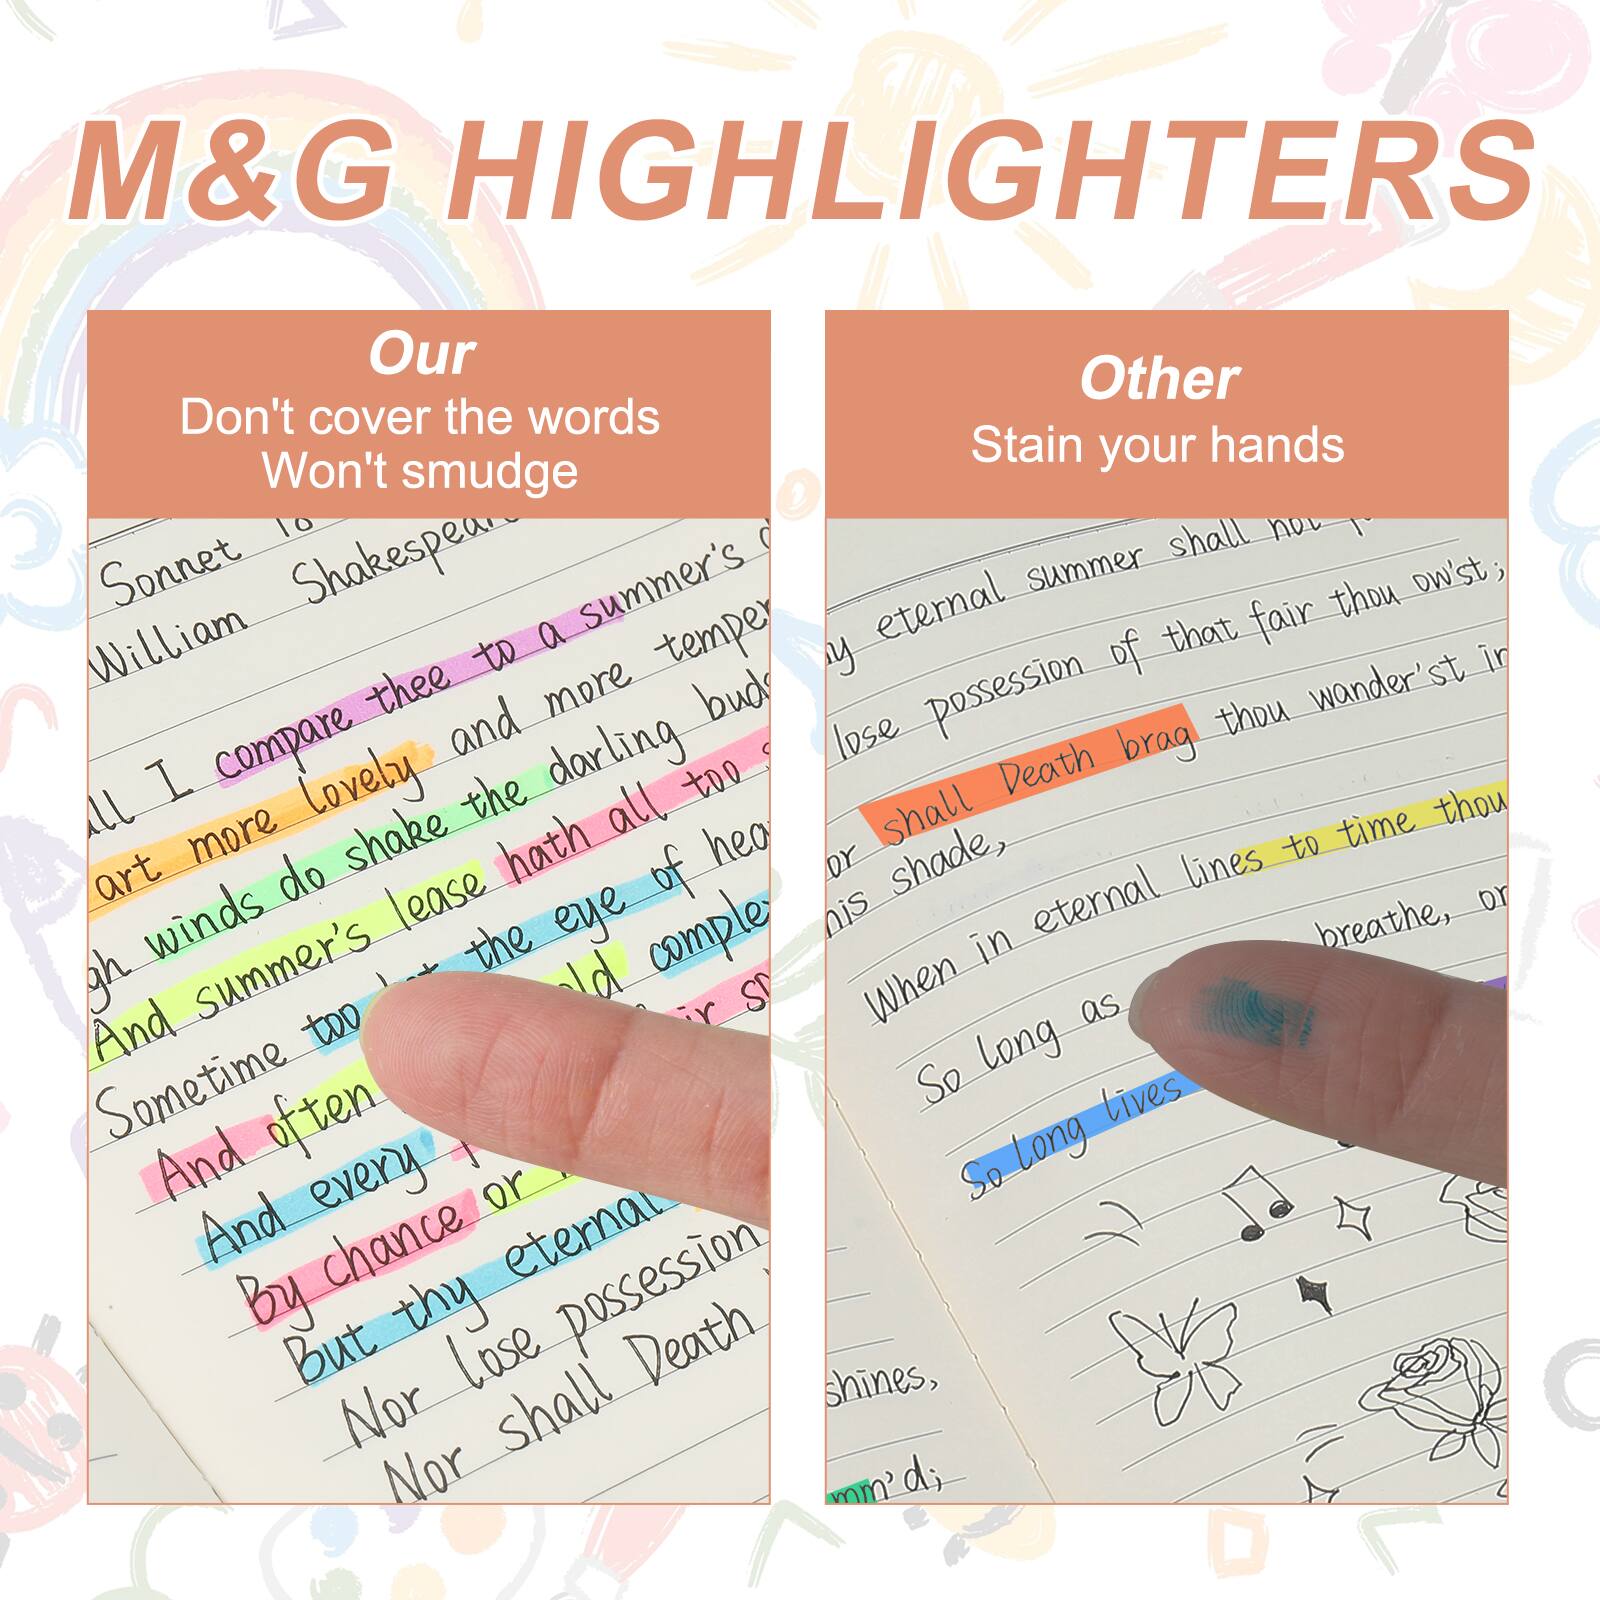 M&G HIGHLIGHTERS
Our
Don't cover the words
Won't smudge
Sonnet 18
William Shakespear
all I compare thee to a summer's d
art more lovely and more temper
gh winds do shake the darling buds
And summer's lease hath all too s
Sometime too the eye of hea
And often old comple
And every ir sp
By chance or
But thy eternal
Nor lose possession
Nor shall Death
Other
Stain your hands
y eternal summer shall not f
lose possession of that fair thou ow'st;
or shall Death brag thou wander'st in
his shade,
When in eternal lines to time thou
So long as breathe, or
So long lives
shines,
mm'd;